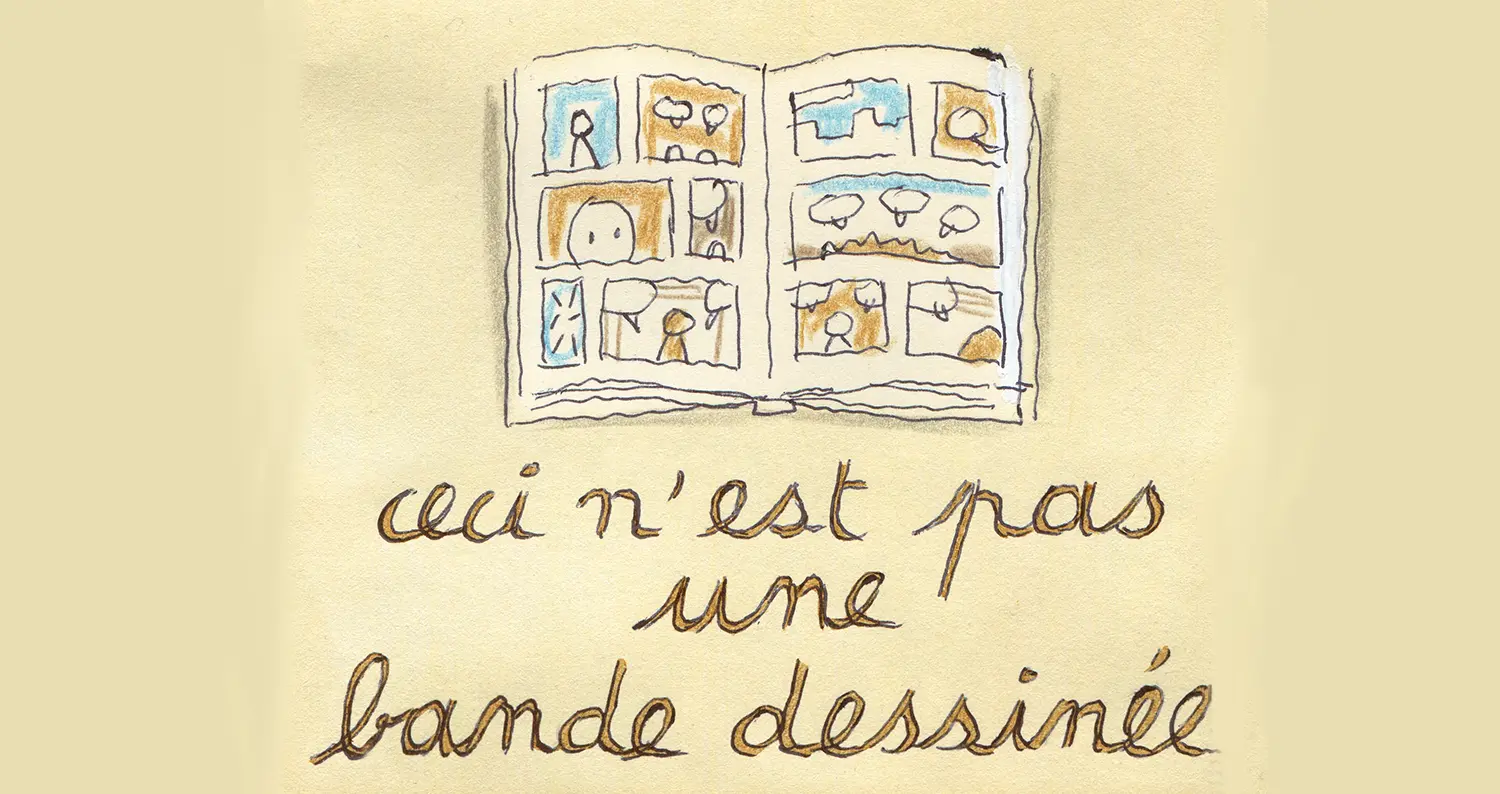 ceci n'est pas
une
bande dessinée